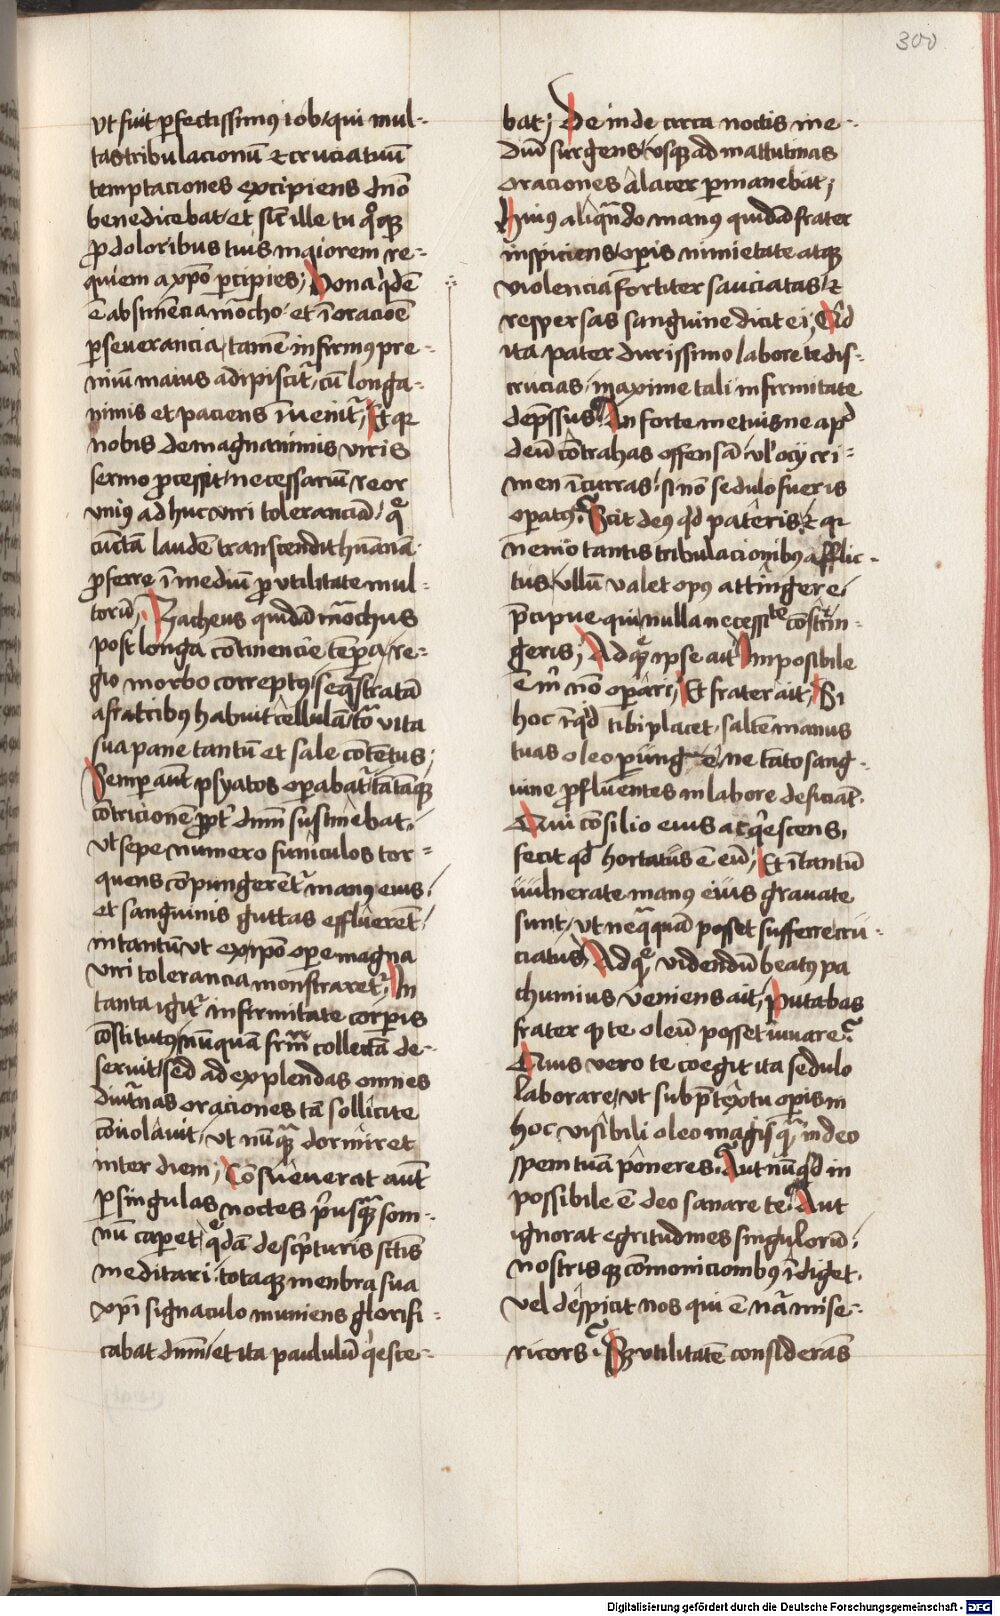 300
vt fuit ꝑfectissimꝰ iob / qui mul-
tas tribulacionū et cruciatuū
temptaciones excipiens dn̄o
benedicebat / et sic̄ ille tu qͦqꝫ
ꝓ doloribus tuis maiorem re-
quiem a xp̄o ꝑcipies / Bona qⁱdē
ē abstinēcia mōcho / et ī oracioē
ꝑseuerancia / tamē infirmꝰ pre-
miū maius adipiscit᷑ / cū longa-
nimis et paciens īuenit᷑ / Et qꝛ
nobis de magnanimis viris
sermo ꝓcessit / necessariū reor
vniꝰ ad huc viri toleranciā / q̄
cūctā laudē transcendit hūanā
ꝓferre ī mediū ꝓ vtilitate mul-
torū / Zacheus quidā mōchus
post longa cōtinencie tēpora / re-
gio morbo correptꝰ / seqͣstratā
a fratribꝰ habuit cellulā / tōᵃ vita
sua pane tantū et sale cōtētus /
Semꝑ aūt psyatos oꝑabat᷑ / tātāqꝫ
cōtricionē ꝓpt᷑ dn̄m sustinebat /
vt sepe numero funiculos tor-
quens cōpungerēt᷑ manꝰ eius /
et sanguinis guttas effluerēt /
in tantū vt ex ip̄o opere magna
viri tolerancia monstraret᷑ / In
tanta igit᷑ infirmitate corꝑis
cōstitutꝰ / nūquam fr̄m̄ collectā de-
seruit / sed ad explendas omnes
diut᷑nas oraciones tā sollicite
cōuolauit / vt nūqͣꝫ dormiret
inter diem / Cōsueuerat aūt
ꝑ singulas noctes pⁱusqͣꝫ som-
nū caperet / q̄dā de scⁱpturis sctīs
meditari / totaqꝫ menbra sua
xp̄i signaculo muniens glorifi-
cabat dn̄m / et ita paululū qⁱesce-
bat / De inde circa noctis me-
diū surgens / vsqꝫ ad mattutinas
oraciones alacer ꝑmanebat /
Huius aliqͣndo manꝰ quidā frater
inspiciens / oꝑis nimietate atqꝫ
violenciā fortiter sauciatas / et
respersas sanguine dicit ei / Qⁱd
ita pater durissimo labore te dis-
crucias / maxime tali infirmitate
dep̄ssus / An forte metuis ne apᵈ
deū cōtrahas offensā / vl' ocij cri-
men īcurras / si nō sedulo fueris
oꝑatꝰ / Scit deꝰ qd pateris / et qꝛ
nemo tantis tribulacionibꝰ afflic-
tus / vllū valet opꝰ attingere /
p̄cipue qui nulla necessiᵗᵉ cōstrin-
geris / Ad q̄ ip̄se ait / Imposibile
ē m̄ nō oꝑari / Et frater ait / Si
hoc īqⁱd tibi placet / saltē manus
tuas oleo perunge / ne tāto sang-
uine ꝓfluentes in labore deficiāt /
Qui cōsilio eius acqⁱescens /
fecit qd hortatus ē eū / Et ī tantū
vulnerate manꝰ eius grauate
sunt / vt neqͣquā posset sufferre cru-
ciatus / Ad q̄ videndū beatꝰ pa
chumius veniens ait / Putabas
frater qꝫ te oleū posset iuuare /
Quis vero te coegit ita sedulo
laborare / vt sub p̄textu oꝑis in
hoc visibili oleo magis qͣꝫ in deo
spem tuā poneres / Aut nūqⁱd in
possibile ē deo sanare te / Aut
ignorat egritudines singulorū /
nostrisqꝫ cōmonicionibꝰ īdiget /
vel despicit nos qui ē nā mise-
ricors / Sꝫ vtilitatē considerās
Digitalisierung gefördert durch die Deutsche Forschungsgemeinschaft - DFG